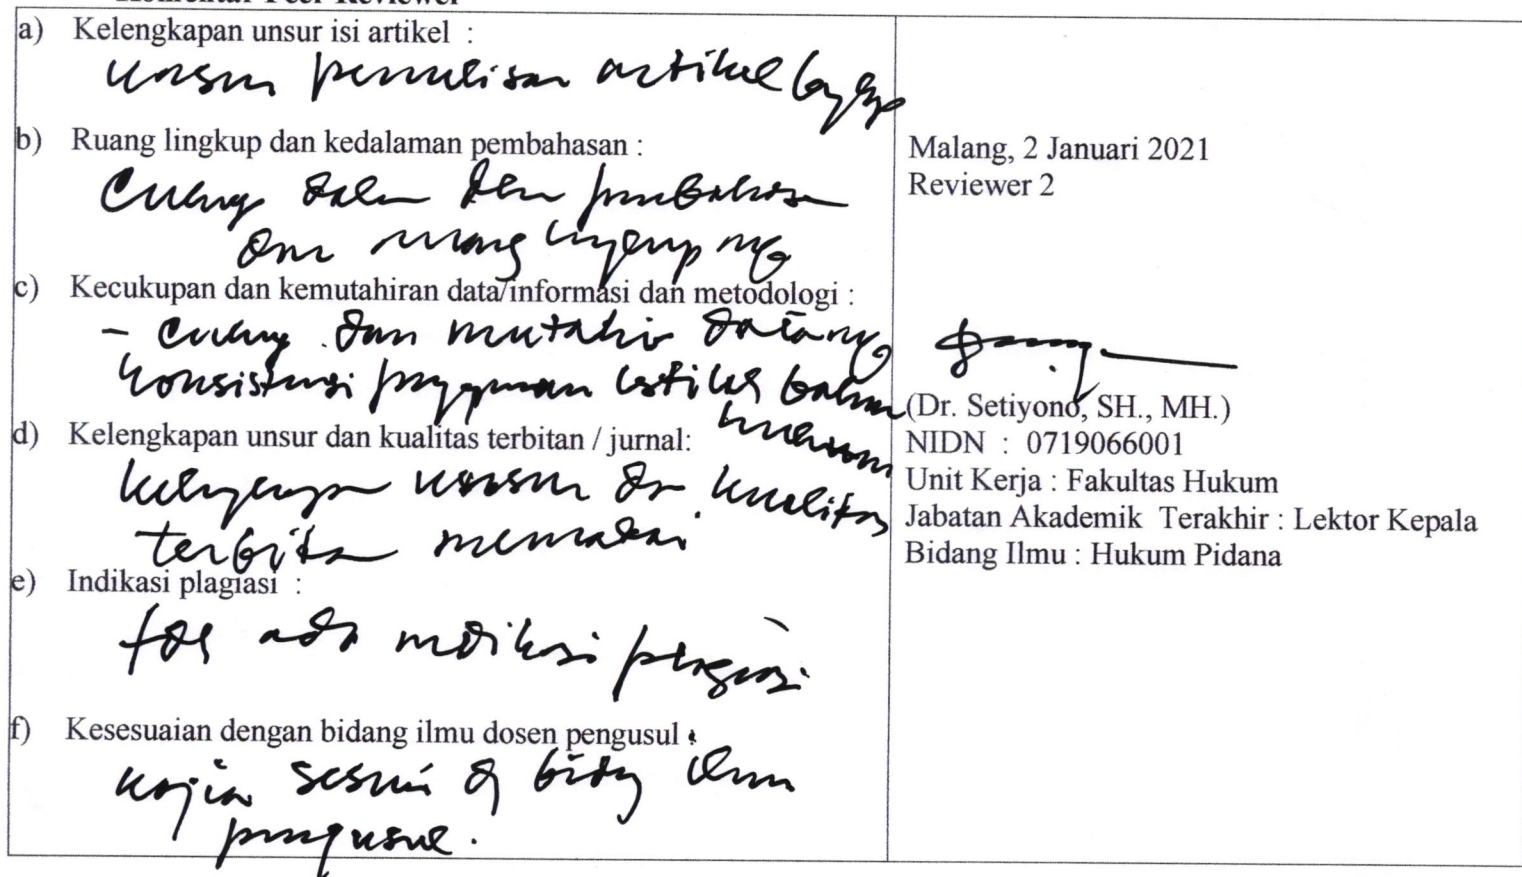 Komentar Peer Reviewer
a) Kelengkapan unsur isi artikel :
unsur penulisan artikel
b) Ruang lingkup dan kedalaman pembahasan :
cukup dalam dan pembahasan
dan ruang
c) Kecukupan dan kemutahiran data/informasi dan metodologi :
- cukup dan mutahir
konsistensi artikel bahan
hukum
d) Kelengkapan unsur dan kualitas terbitan / jurnal:
unsur dan kualitas
terbitan memadai
e) Indikasi plagiasi :
tdk ada indikasi plagiasi
f) Kesesuaian dengan bidang ilmu dosen pengusul :
kajian sesuai dg bidg ilmu
pengusul.
Malang, 2 Januari 2021
Reviewer 2
(Dr. Setiyono, SH., MH.)
NIDN : 0719066001
Unit Kerja : Fakultas Hukum
Jabatan Akademik Terakhir : Lektor Kepala
Bidang Ilmu : Hukum Pidana